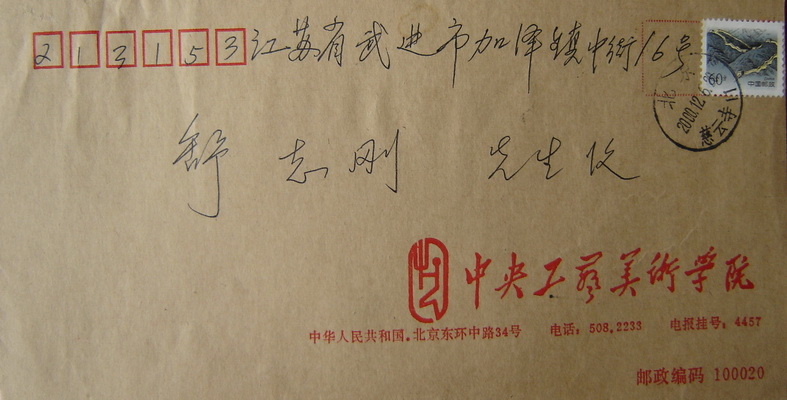 213153 江苏省武进市加泽镇中街16号
60
中国邮政
北京
2000.12.
慈云寺
舒志刚 先生收
中央工艺美术学院
中华人民共和国.北京东环中路34号 电话：508.2233 电报挂号：4457
邮政编码 100020